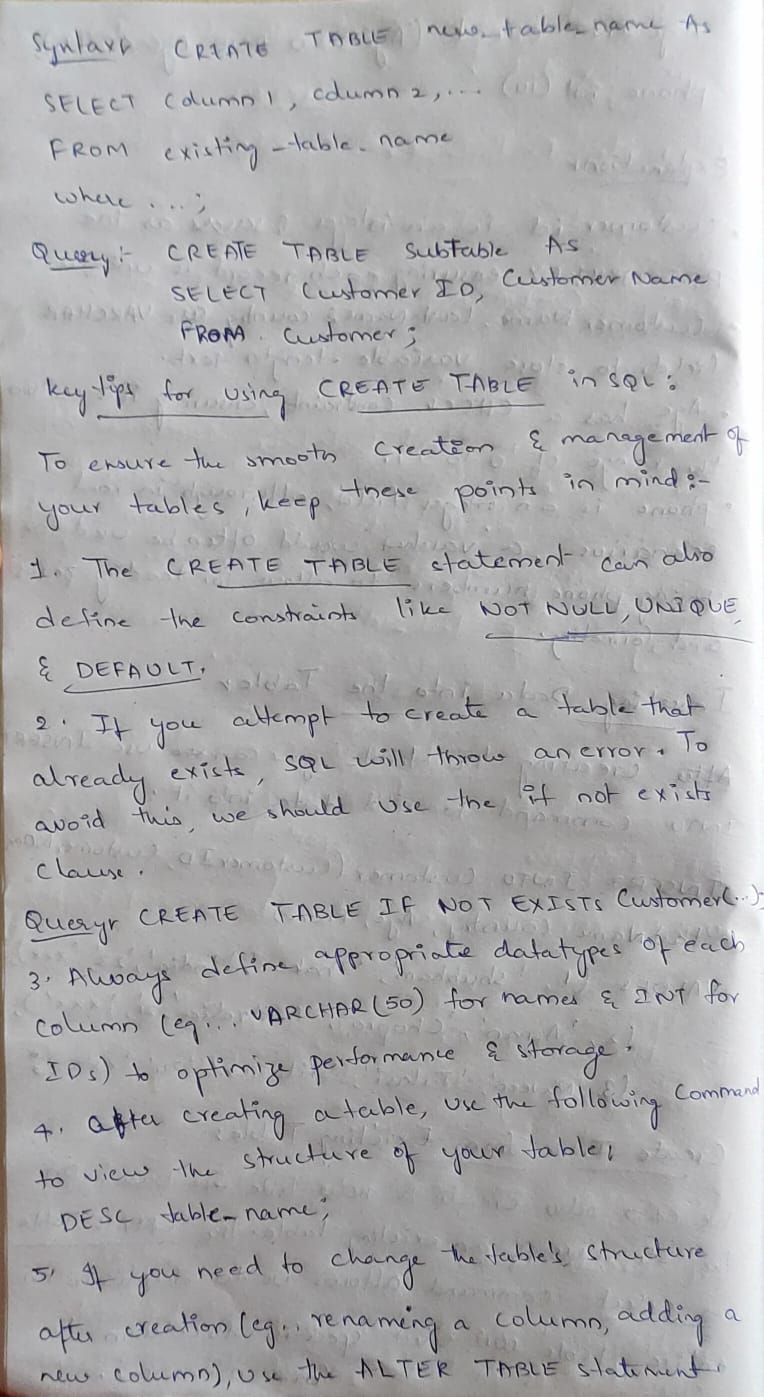 Syntax:- CREATE TABLE new_table_name As
SELECT Column 1, column 2,...
FROM existing-table-name
where ...;
Query:- CREATE TABLE SubTable As
SELECT Customer ID, Customer Name
FROM Customer;
key tips for using CREATE TABLE in SQL:
To ensure the smooth creation & management of
your tables, keep these points in mind:-
1. The CREATE TABLE statement can also
define the constraints like NOT NULL, UNIQUE,
& DEFAULT.
2. If you attempt to create a table that
already exists, SQL will throw an error. To
avoid this, we should use the if not exists
clause.
Query:- CREATE TABLE IF NOT EXISTS Customer(...);
3. Always define appropriate datatypes of each
column (eg... VARCHAR (50) for names & INT for
IDs) to optimize performance & storage.
4. after creating a table, use the following Command
to view the structure of your table:
DESC table_name;
5. If you need to change the table's structure
after creation (eg.. renaming a column, adding a
new column), use the ALTER TABLE statement.